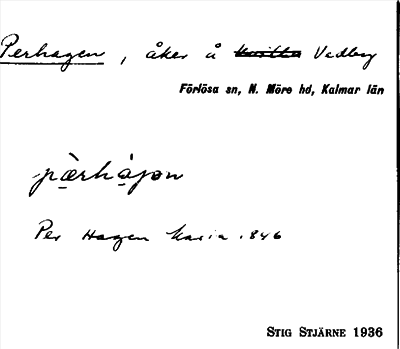 Perhagen, åker å Vedby
Förlösa sn, N. Möre hd, Kalmar län
pàrhàgən
Per Hagen Maria 1846
STIG STJÄRNE 1936